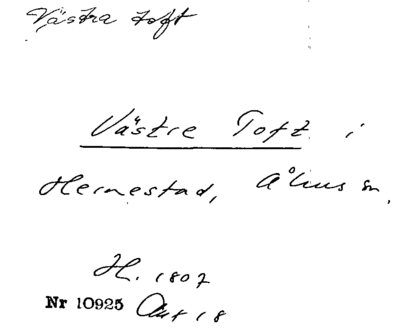 Västra toft
Västre Toft i
Hernestad, Åhus sn.
H. 1807
Nr 10925 Akt 18